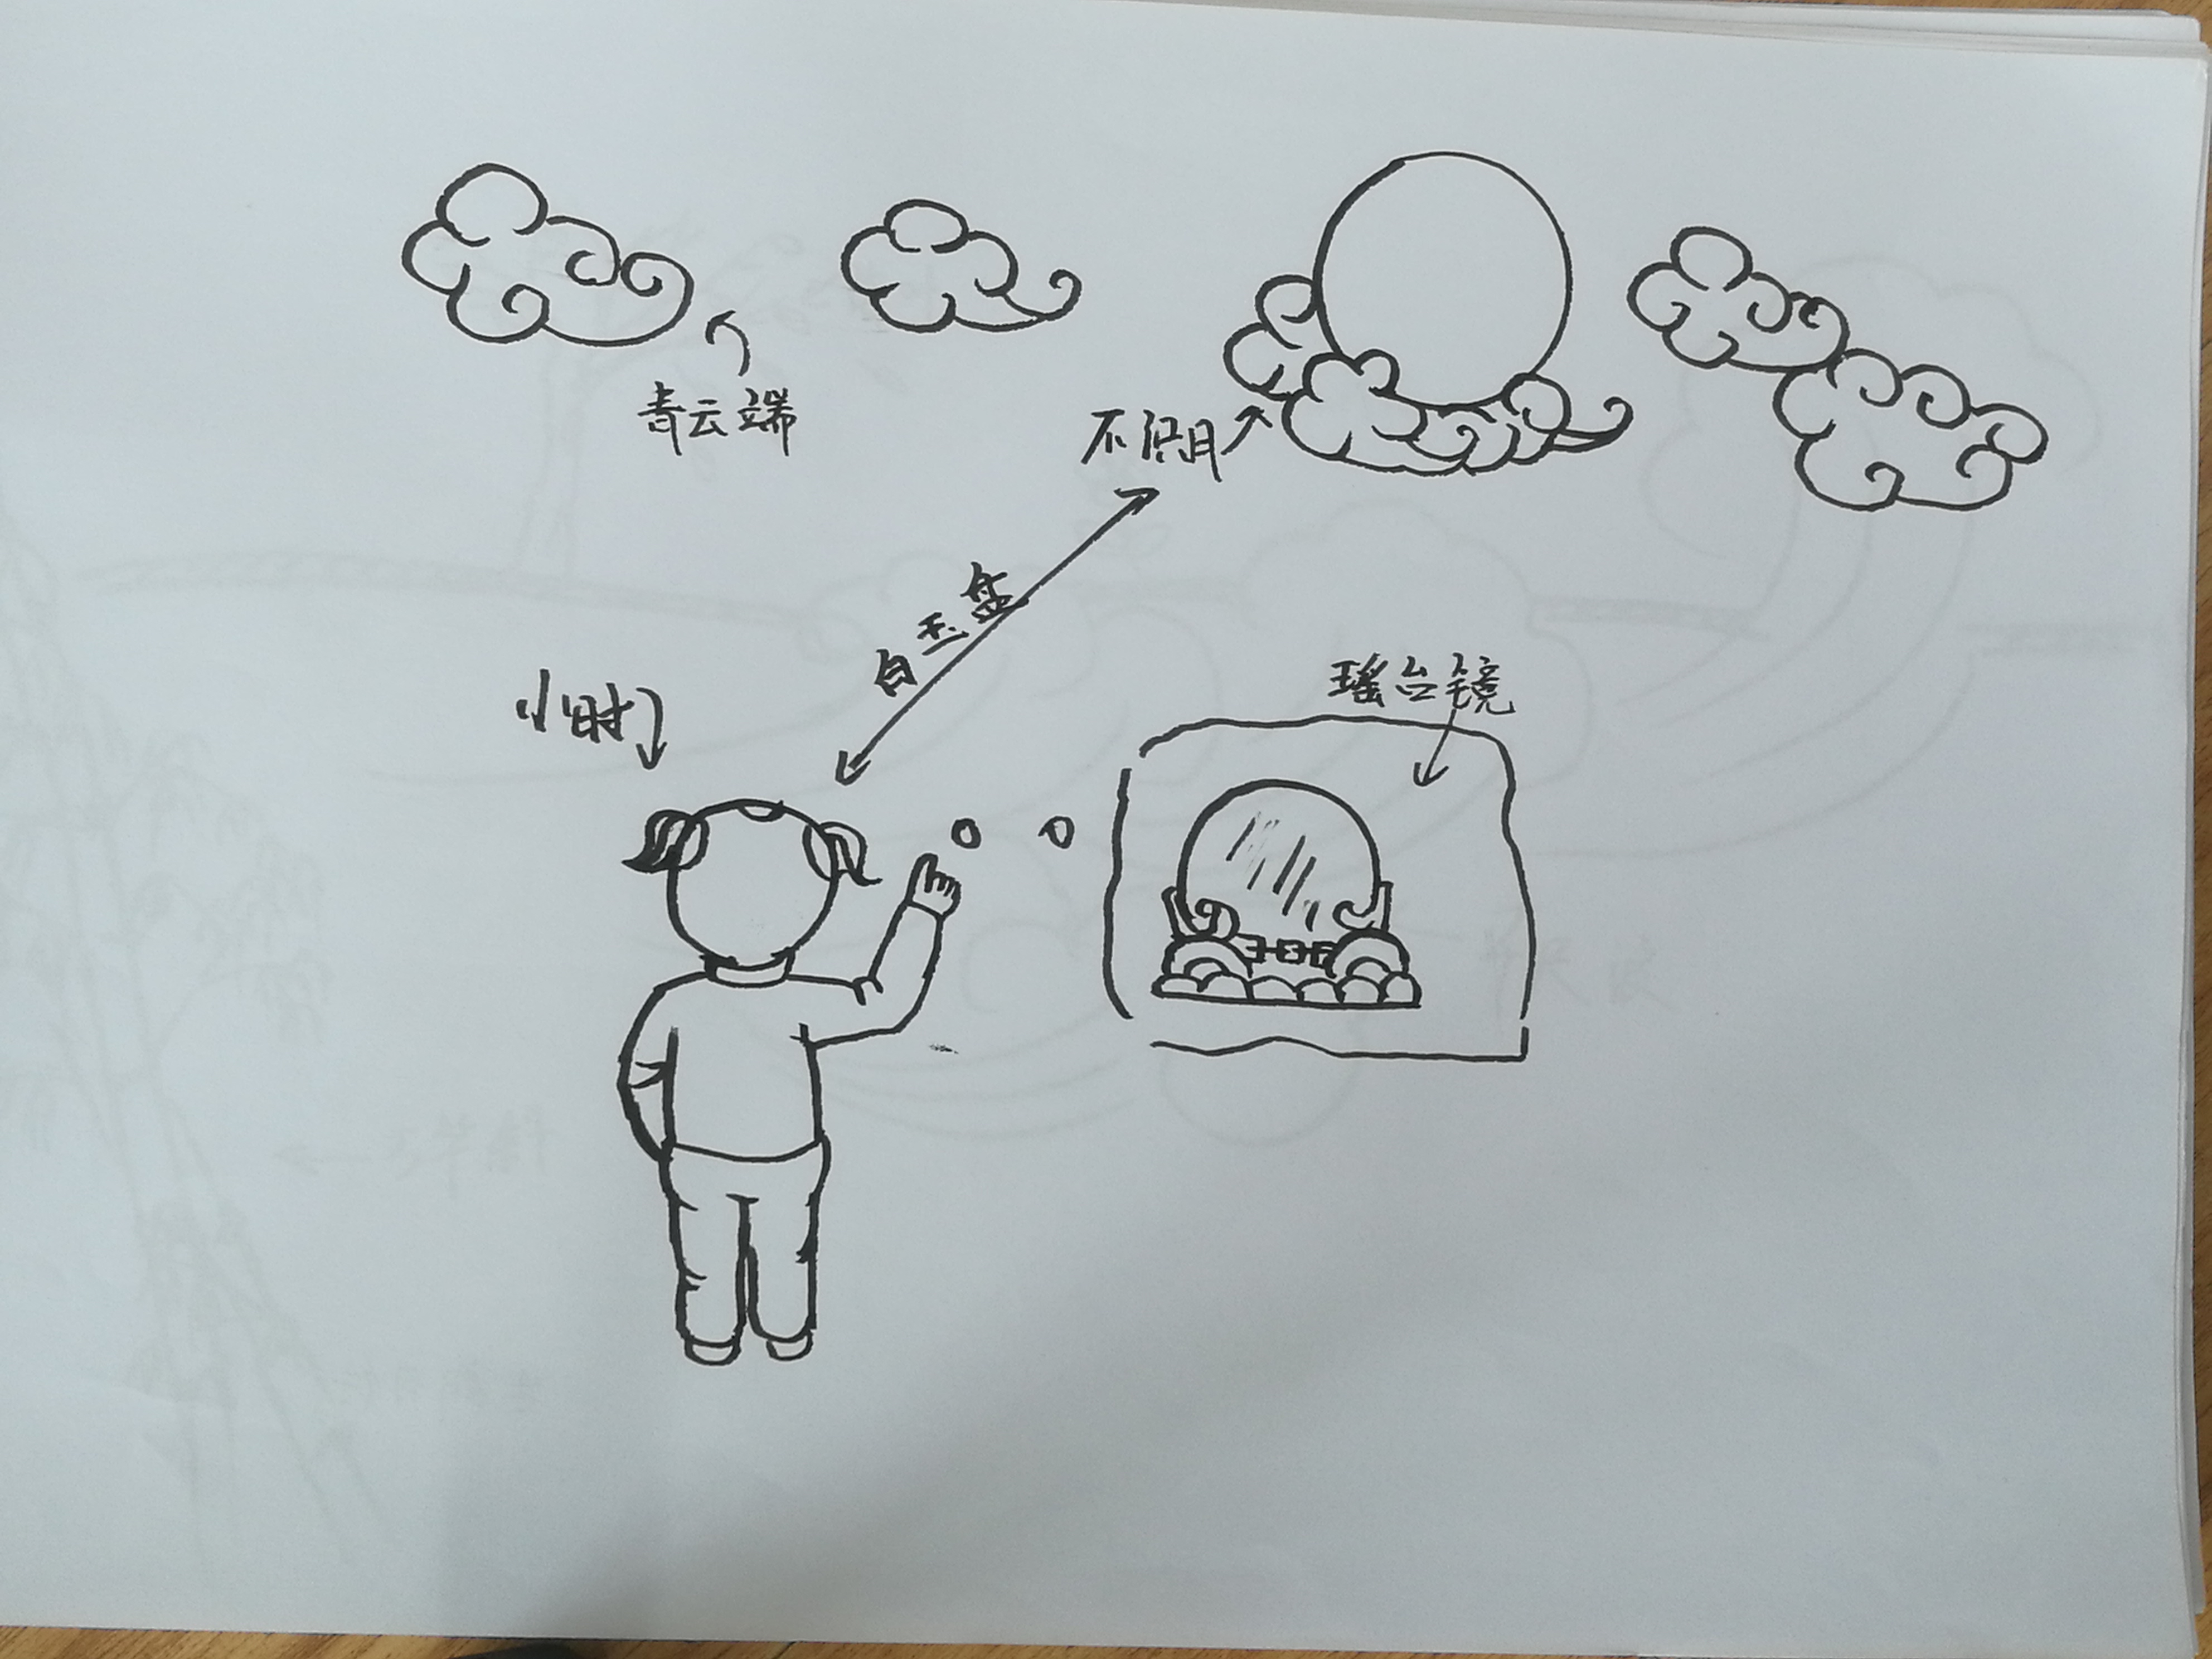 青云端
不识月
白玉盘
小时
瑶台镜